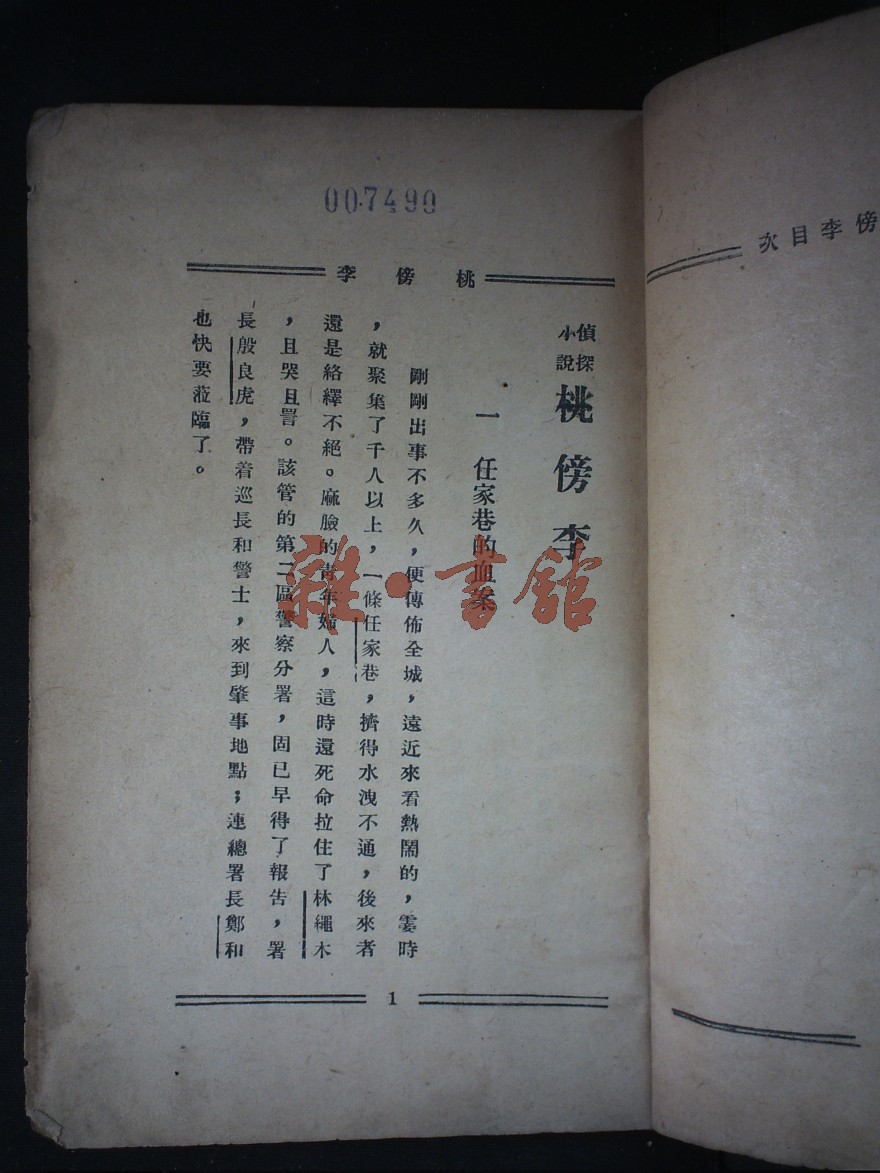 007490
桃傍李
偵探
小說
桃傍李
一 任家巷的血案
剛剛出事不多久，便傳佈全城，遠近來看熱鬧的，霎時
，就聚集了千人以上，一條任家巷，擠得水洩不通，後來者
還是絡繹不絕。麻臉的青年婦人，這時還死命拉住了林繩木
，且哭且詈。該管的第二區警察分署，固已早得了報告，署
長殷良虎，帶着巡長和警士，來到肇事地點；連總署長鄭和
也快要蒞臨了。
1
傍李目次
雜·書館